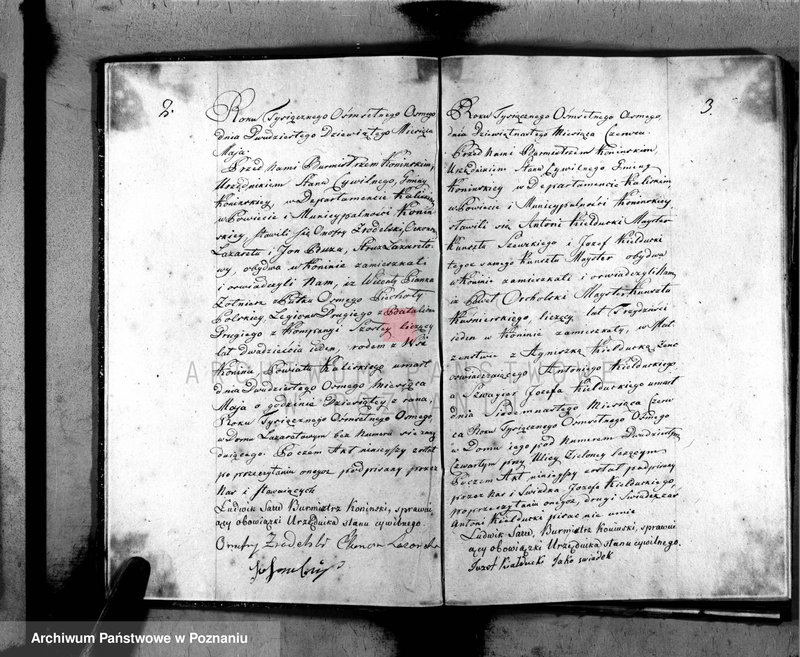 2.
Roku Tysiącznego Osmsetnego Osmego
dnia Dwudziestego Dziewiątego Miesiąca
Maja.
Przed Nami Burmistrzem Koninskim,
Urzędnikiem Stanu Cywilnego, Gminy
Koninskiey, w Departamencie Kaliskim
w Powiecie i Municypalności Konin
skiey stawili się Onofry Zrodelski, Ekonom
Lazaretu i Jon Buza, Struz Lazareto
wy, obydwa w Koninie zamieszkali
i oswiadczyli Nam, iż Wicenty Pianka
Zołnierz z Pułku Osmego Piechoty
Polskiey Legionu Drugiego z Batalionu
Drugiego z Kompanyi Szostey liczący
lat Dwadzieścia ieden, rodem z Wsi
Konina Powiatu Kaliskiego umarł
dnia Dwudziestego Osmego Miesiąca
Maja o godzinie Dziewiątey z rana,
Roku Tysiącznego Osmsetnego Osmego,
w Domu Lazaretowym bez Numeru się znay
duiącego. Po czem Akt ninieyszy został
po przeczytaniu onegoż podpisany przez
Nas i Stawaiących
Ludwik Sard Burmistrz Koninski, sprawui
ący obowiązki Urzędnika stanu cywilnego.
Onufry Zrodelski Ekonom Lazaretu
3.
Roku Tysiącznego Osmsetnego Osmego
dnia Dziewiętnastego Miesiąca Czerwca.
Przed Nami Burmistrzem Koninskim
Urzędnikiem Stanu Cywilnego Gminy
Koninskiey w Departamencie Kaliskim
w Powiecie i Municypalności Koninskiey
stawili się Antoni Kiełducki Mayster
Kunsztu Szewskiego i Jozef Kiełducki
tegoż samego Kunsztu Mayster obydwa
w Koninie zamieszkali i oswiadczyli Nam,
iż Paweł Orcholski Mayster Kunsztu
Kusnierskiego, liczący lat Trzydzieści
ieden w Koninie zamieszkały, w Mał
zenstwie z Agnieszką Kiełducką Sono
oswiadczaiącego Antoniego Kiełduckiego
a Szwagier Jozefa Kiełduckiego umarł
dnia Siedemnastego Miesiąca Czerw
ca Roku Tysiącznego Osmsetnego Osmego
w Domu iego pod Numerem Dwudziestym
Czwartym przy Ulicy Zieloney leżącym
Poczem Akt ninieyszy został podpisany
przez Nas i Swiadka Jozefa Kiełduckiego,
po przeczytaniu onegoż, drugi Swiadek zas
Antoni Kiełducki pisac nie umie
Ludwik Sard, Burmistrz Koninski, sprawui
ący obowiązki Urzędnika stanu cywilnego.
Juzef Kiałducki Jako swiadek
Archiwum Państwowe w Poznaniu